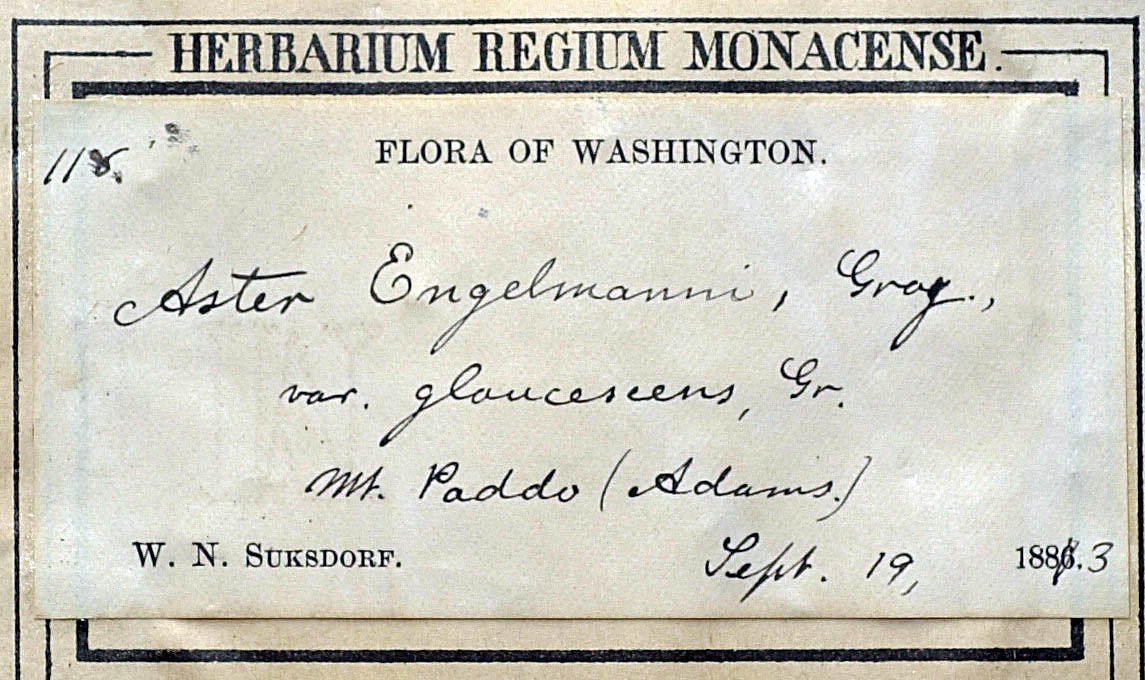 HERBARIUM REGIUM MONACENSE.
118.
FLORA OF WASHINGTON.
Aster Engelmanni, Gray.,
var. glaucescens, Gr.
Mt. Paddo (Adams.)
W. N. SUKSDORF.
Sept. 19, 1883